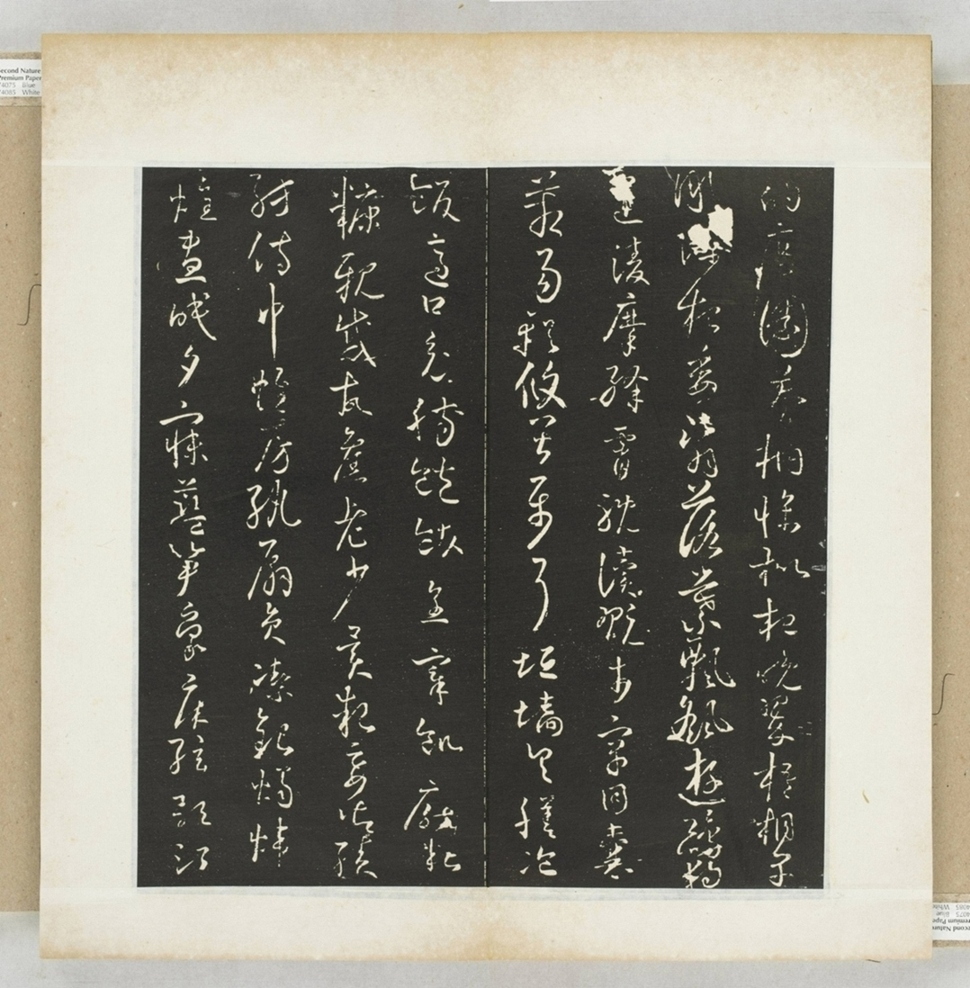 的歷園莽抽條枇杷晚翠梧桐早
凋陳根委翳落葉飄颻遊鵾獨
運凌摩絳霄耽讀翫市寓目囊
箱易輶攸畏屬耳垣牆具膳飡
飯適口充腸飽飫烹宰飢厭糟
糠親戚故舊老少異糧妾御績
紡侍巾帷房紈扇員潔銀燭煒
煌晝眠夕寐藍筍象床絃歌酒
econd Nature
Premium Paper
74075 Blue
74085 White